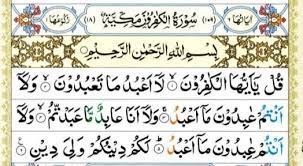 اٰيَاتُهَا ٦ (١٠٩) سُوْرَةُ الْكٰفِرُوْنَ مَكِّيَّةٌ (١٨) رُكُوْعُهَا ١
بِسْمِ اللّٰهِ الرَّحْمٰنِ الرَّحِيْمِ
قُلْ يٰۤاَيُّهَا الْكٰفِرُوْنَ ۙ لَاۤ اَعْبُدُ مَا تَعْبُدُوْنَ ۙ وَلَاۤ
اَنْتُمْ عٰبِدُوْنَ مَاۤ اَعْبُدُ ۚ وَلَاۤ اَنَا عَابِدٌ مَّا عَبَدْتُّمْ ۙ وَلَاۤ
اَنْتُمْ عٰبِدُوْنَ مَاۤ اَعْبُدُ ؕ لَكُمْ دِيْنُكُمْ وَلِيَ دِيْنِ